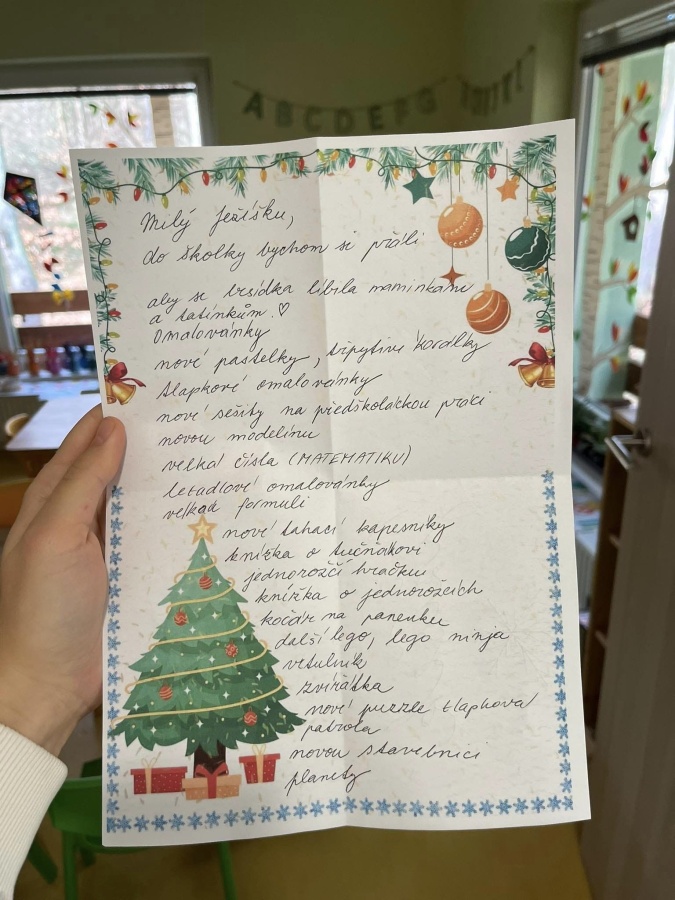 A B C D E F G
Milý Ježíšku,
do školky bychom si přáli
aby se besídka líbila maminkám
a tatínkům. ♡
Omalovánky
nové pastelky, třpytivé korálky
tlapkové omalovánky
nové sešity na předškoláckou práci
novou modelínu
velká čísla (MATEMATIKU)
letadlové omalovánky
velkou formuli
nové tahací kapesníky
knížka o tučňákovi
jednorožčí hračku
knížka o jednorožcích
kočár na panenku
další lego, lego ninja
vrtulník
zvířátka
nové puzzle tlapková
patrola
novou stavebnici
planety